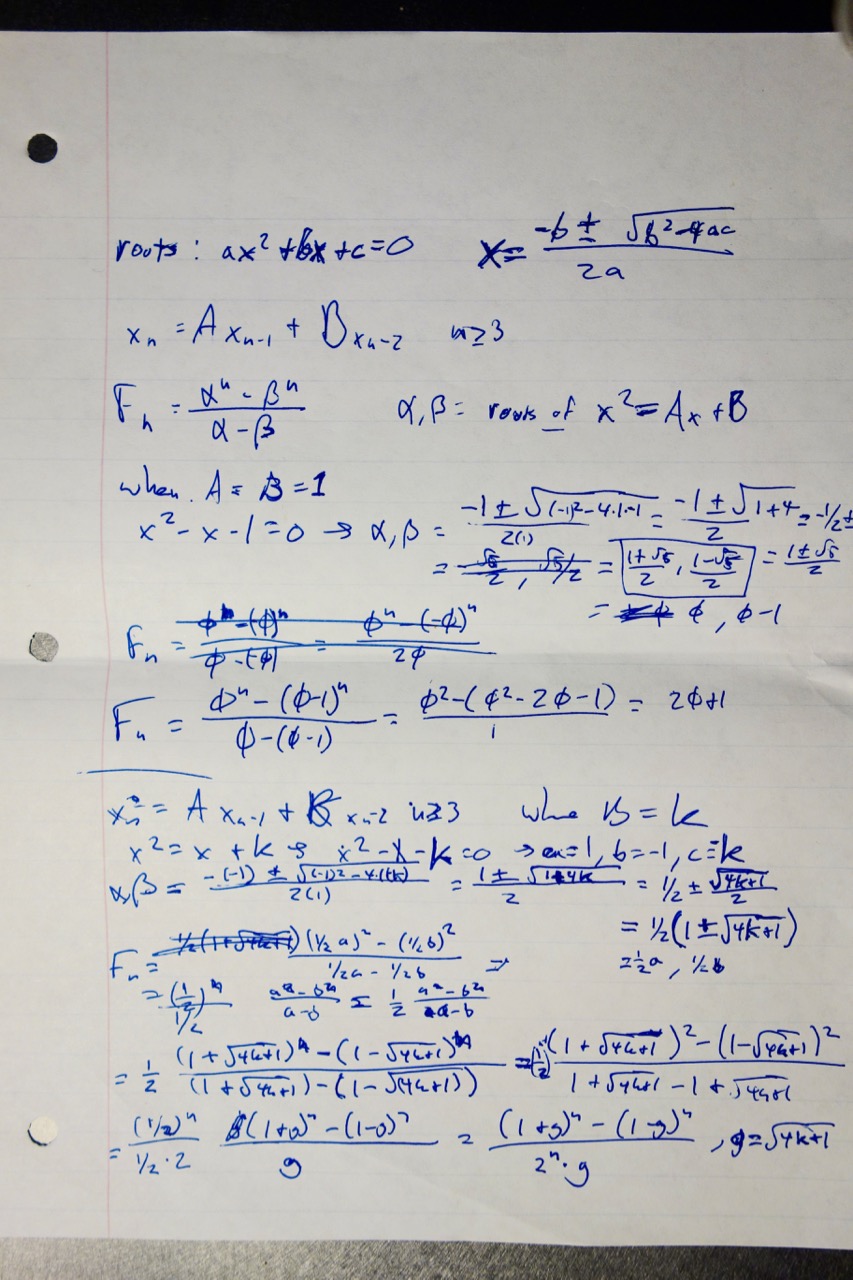 roots: ax² + bx + c = 0    x = (-b ± √(b² - 4ac)) / 2a
xₙ = A xₙ₋₁ + B xₙ₋₂    n ≥ 3
Fₙ = (αⁿ - βⁿ) / (α - β)    α, β = roots of x² = Ax + B
when A = B = 1
x² - x - 1 = 0 → α, β = (-1 ± √((-1)² - 4·1·-1)) / 2(1) = (-1 ± √(1+4)) / 2 = -1/2 ±
= √5/2, √5/2 = (1+√5)/2, (1-√5)/2 = (1 ± √5)/2
= φ, φ-1
Fₙ = (φⁿ - (φ)ⁿ) / (φ - (φ)) = (φⁿ - (-φ)ⁿ) / 2φ
Fₙ = (φⁿ - (φ-1)ⁿ) / (φ - (φ-1)) = (φ² - (φ² - 2φ - 1)) / 1 = 2φ + 1
xₙ = A xₙ₋₁ + B xₙ₋₂ n ≥ 3    when B = k
x² = x + k → x² - x - k = 0 → a = 1, b = -1, c = k
αβ = (-(-1) ± √((-1)² - 4·1·k)) / 2(1) = (1 ± √(1+4k)) / 2 = 1/2 ± √(4k+1)/2
= 1/2 (1 ± √(4k+1))
= ½a, ½b
Fₙ = 1/2(1+√(4k+1)) ((½a)² - (½b)²) / (½a - ½b) ⇒
= (1/2)ⁿ / 1/2    (aⁿ - bⁿ)/(a - b) = 1/2 (aⁿ - bⁿ)/(a - b)
= 1/2 ((1 + √(4k+1))ⁿ - (1 - √(4k+1))ⁿ) / ((1 + √(4k+1)) - (1 - √(4k+1))) = (1/2) ((1 + √(4k+1))² - (1 - √(4k+1))²) / (1 + √(4k+1) - 1 + √(4k+1))
= (1/2)ⁿ / (1/2 · 2) ((1+g)ⁿ - (1-g)ⁿ) / g = ((1+g)ⁿ - (1-g)ⁿ) / (2ⁿ · g), g = √(4k+1)